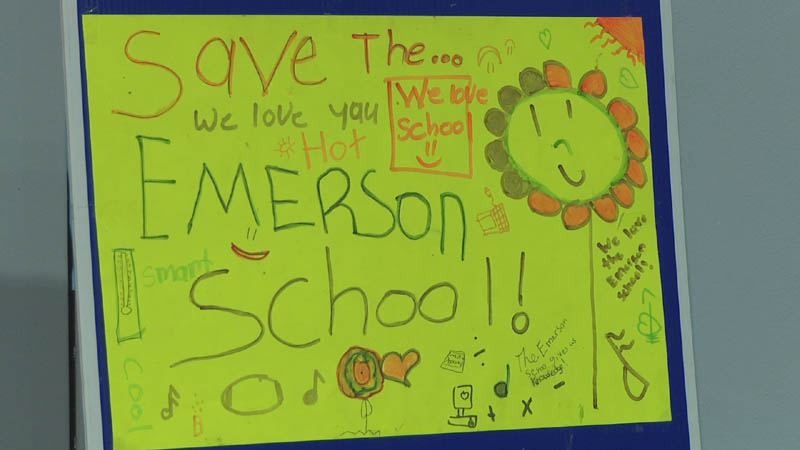 Save The...
We love yau
We love
School
#Hot
EMERSON
School!
smart
cool
We love
the
Emerson
school!
The Emerson
School gives us
knowledge!
+ x -